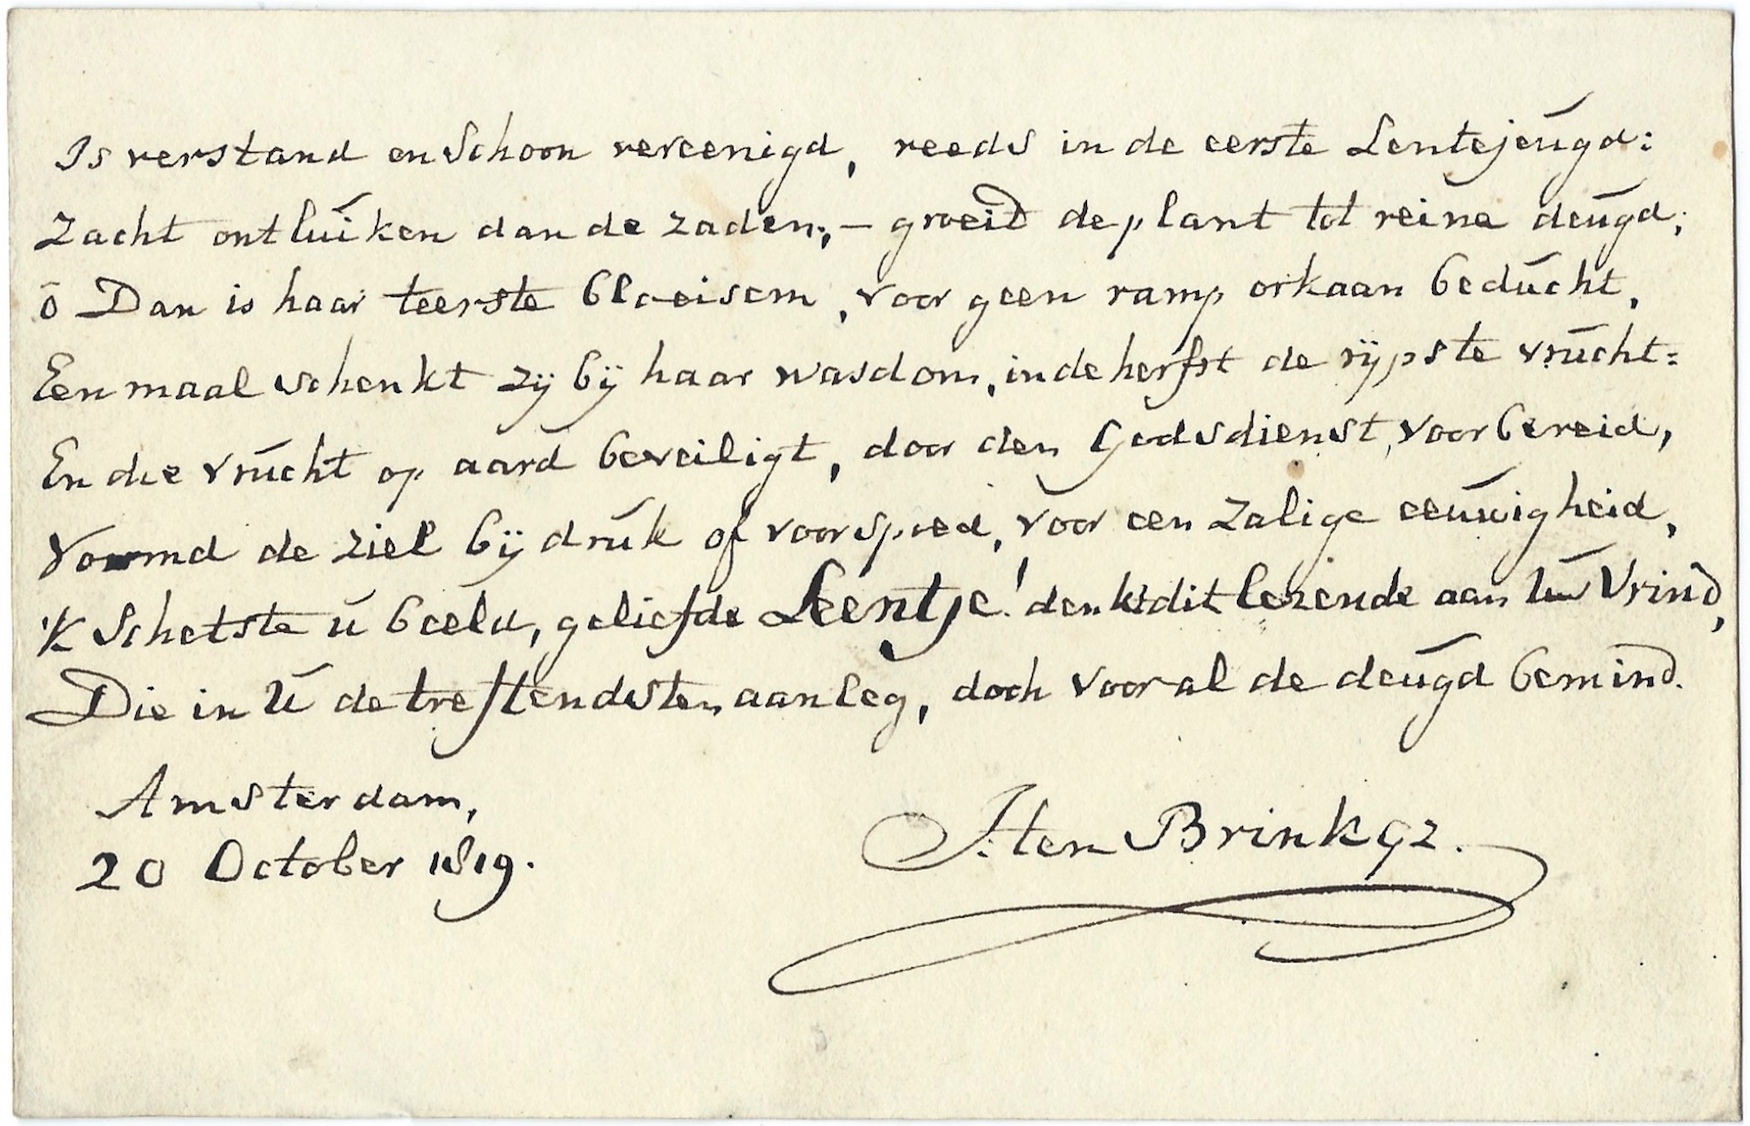 Is verstand en Schoon vereenigd, reeds in de eerste Lentejeugd:
Zacht ontluiken dan de zaden;, – groeid de plant tot reine deugd;
ô Dan is haar teerste bloeisem, voor geen ramp orkaan beducht,
Eenmaal schenkt zij bij haar wasdom, in de herfst de rijpste vrucht:
En die vrucht op aard beveiligt, door den Godsdienst, voorbereid,
Vormd de ziel bij druk of voorspoed, voor een zalige eeuwigheid,
'K Schetste u beeld, geliefde Leentje! denkt dit lezende aan Uw Vrind,
Die in U de treffendsten aanleg, doch vooral de deugd bemind.
Amsterdam,
20 October 1819.
J: ten Brink gz.